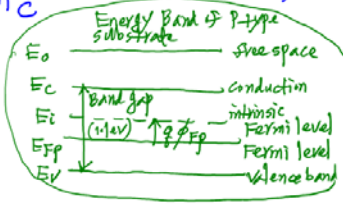 C
Energy Band of P-type
substrate
E₀ free space
Ec conduction
Band gap
Ei intrinsic
(1.1eV) qφFp Fermi level
EFp Fermi level
Ev Valence band